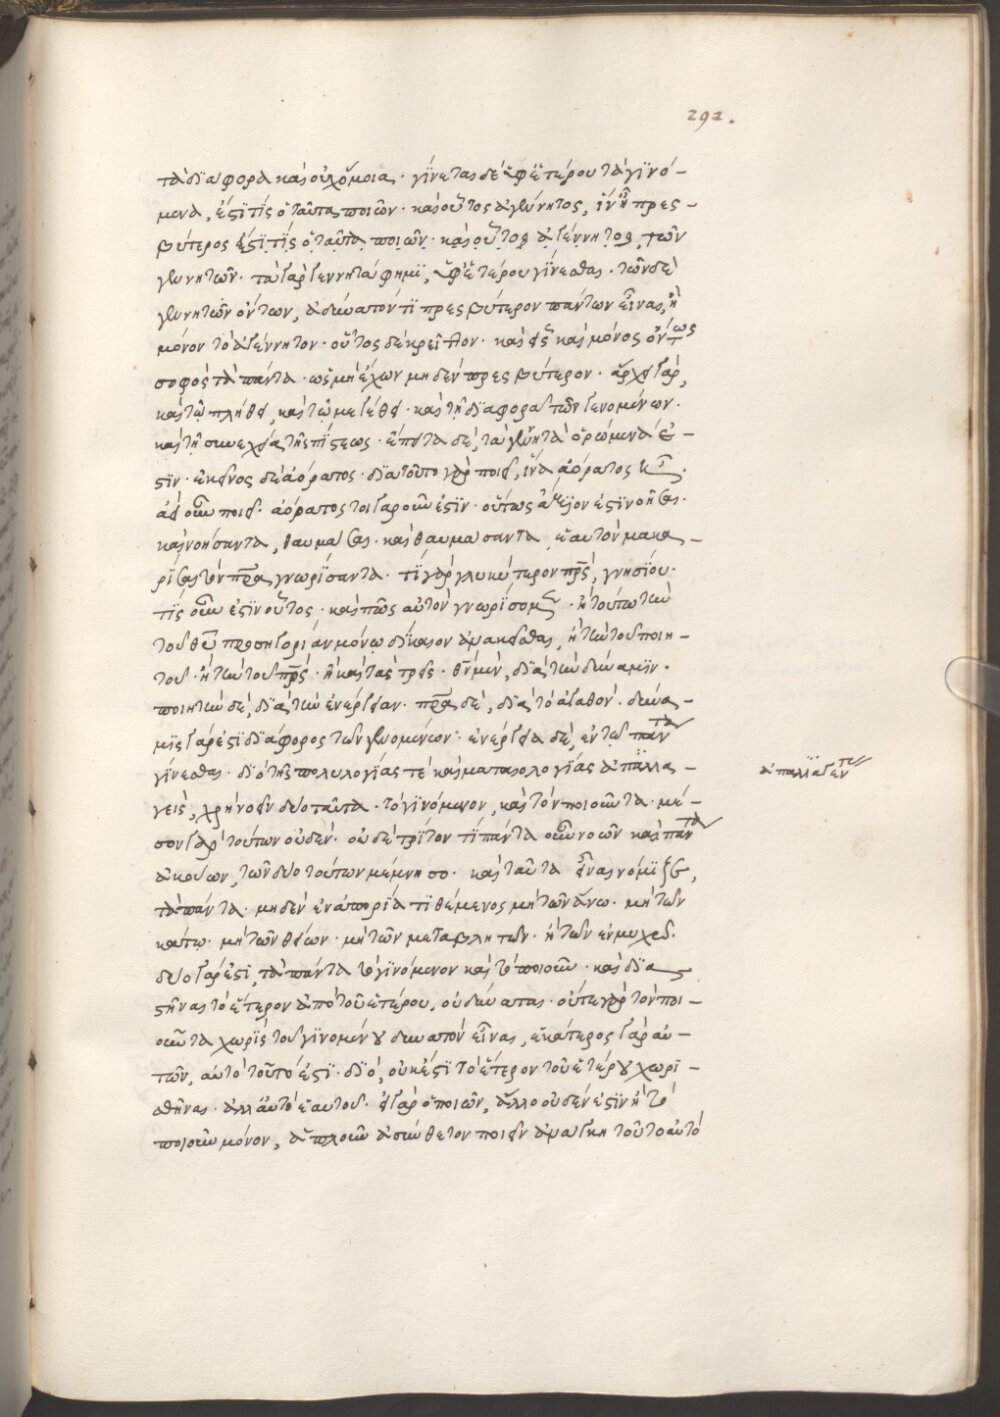 292.
τὰ διαφορα καὶ οὐχ ὅμοια. γίνεται δὲ ὑφ' ἑτέρου τὰ γινό-
μενα, ἔστι τίς ὁ ταῦτα ποιῶν. καὶ οὗτος ἀγένητος, ἵν' ᾖ πρεσ-
βύτερος ἔστι τίς ὁ ταῦτα ποιῶν. καὶ οὗτος ἀγέννητος, τῶν
γενητῶν. τὰ γὰρ γεννητά φημι, ὑφ' ἑτέρου γίνεσθαι. τῶν δὲ
γενητῶν ὄντων, ἀδύνατόν τι πρεσβύτερον πάντων εἶναι, ἢ
μόνον τὸ ἀγέννητον. οὗτος δὲ κρεῖττον. καὶ εἷς καὶ μόνος ὄντως
σοφὸς τὰ πάντα. ὡς μὴ ἔχων μηδὲν πρεσβύτερον. ἄρχει γὰρ,
καὶ τῷ πλήθει, καὶ τῷ μεγέθει. καὶ τῇ διαφορᾷ τῶν γενομένων.
καὶ τῇ συνεχείᾳ τῆς πίστεως. ἔπειτα δέ, τὰ γενητὰ ὁρώμενά ἐ-
στιν. ἐκεῖνος δὲ ἀόρατος. διὰ τοῦτο γὰρ ποιεῖ, ἵνα ἀόρατος ᾖ.
ἀεὶ οὖν ποιεῖ. ἀόρατος τοιγαροῦν ἐστιν. οὕτως ἄξιόν ἐστι νοῆσαι.
καὶ νοήσαντα, θαυμάσαι. καὶ θαυμάσαντα ἑαυτὸν μακα-
ρίσαι τὸν πρα γνωρίσαντα. τί γὰρ γλυκύτερον πρς, γνησίου.
τίς οὖν ἐστιν οὗτος. καὶ πῶς αὐτὸν γνωρίσομεν. ἢ τούτῳ τὴν
τοῦ θυ προσηγορίαν μόνῳ δίκαιον ἀνακεῖσθαι, ἢ τὴν τοῦ ποιη-
τοῦ. ἢ τὴν τοῦ πρς. ἢ καὶ τὰς τρεῖς. θν μέν, διὰ τὴν δύναμιν.
ποιητὴν δέ, διὰ τὴν ἐνέργειαν. πρα δέ, διὰ τὸ ἀγαθόν. δύνα-
μις γάρ ἐστι διάφορος τῶν γενομένων. ἐνέργεια δὲ, ἐν τῷ πάντα
γίνεσθαι. διὸ τῆς πολυλογίας τὲ καὶ ματαιολογίας ἀπαλλα-
ἀπαλλαγέντες
γεὶς, χρὴ νοεῖν δύο ταῦτα. τὸ γινόμενον, καὶ τὸν ποιοῦντα. μέ-
σον γὰρ τούτων οὐδέν. οὐδὲ τρίτον τί πάντα οὖν νοῶν καὶ πάντα
ἀκούων, τῶν δύο τούτων μέμνησο. καὶ ταῦτα εἶναι νόμιζε,
τὰ πάντα. μηδὲν ἐν ἀπορίᾳ τιθέμενος μὴ τῶν ἄνω. μὴ τῶν
κάτω. μὴ τῶν θείων. μὴ τῶν μεταβλητῶν. ἢ τῶν ἐν μυχῷ.
δύο γάρ ἐστι, τὰ πάντα τὸ γινόμενον καὶ τὸ ποιοῦν. καὶ δια-
στῆναι τὸ ἕτερον ἀπὸ τοῦ ἑτέρου, οὐ δύναται. οὔτε γὰρ τὸν ποι-
οῦντα χωρὶς τοῦ γινομένου δυνατὸν εἶναι, ἑκάτερος γὰρ αὐ-
τῶν, αὐτὸ τοῦτό ἐστι. διό, οὐκ ἔστι τὸ ἕτερον τοῦ ἑτέρου χωρι-
σθῆναι. ἀλλ' αὐτὸ ἑαυτοῦ. εἰ γὰρ ὁ ποιῶν, ἄλλο οὐδέν ἐστιν ἢ τὸ
ποιοῦν μόνον, ἁπλοῦν ἀσύνθετον ποιεῖν ἀνάγκη τοῦτο αὐτὸ